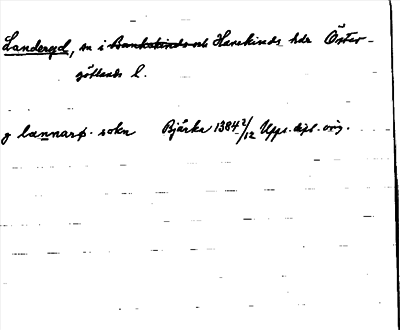 Landeryd, sn i Bankekinds och Hanekinds hdr Öster-
götlands l.
y lænnarø. sokn Bjärka 1384 2/12 Upps. dipl. orig.